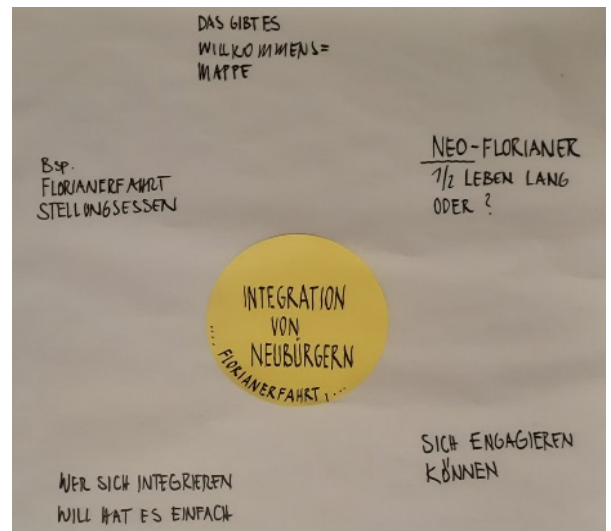 DAS GIBT ES
WILLKOMMENS=
MAPPE
NEO-FLORIANER
1/2 LEBEN LANG
ODER ?
Bsp.
FLORIANERFAHRT
STELLUNGSESSEN
INTEGRATION
VON
NEUBÜRGERN
.... FLORIANERFAHRT, ...
SICH ENGAGIEREN
KÖNNEN
WER SICH INTEGRIEREN
WILL HAT ES EINFACH